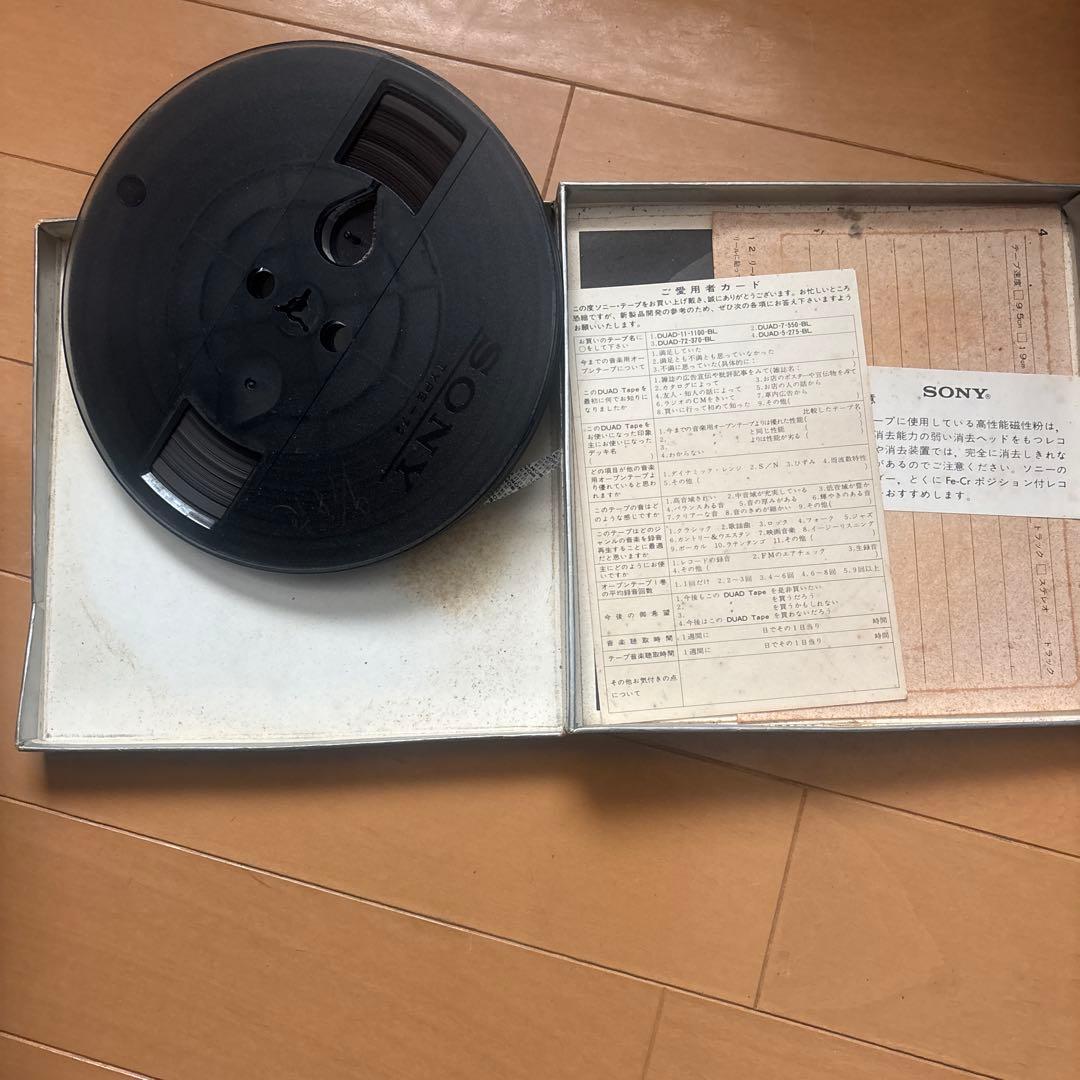 SONY
ご愛用者カード
この度ソニー・テープをお買い上げ戴き、誠にありがとうございます。お忙しいところ
恐縮ですが、新製品開発の参考のため、ぜひ次の各項にお答え下さいますよう
お願いいたします。
お買いのテープ名に
○をして下さい
1.DUAD-11-1100-BL 2.DUAD-7-550-BL
3.DUAD-72-370-BL 4.DUAD-5-275-BL
今までの音楽用オー
プンテープについて
1.満足していた
2.満足とも不満とも思っていなかった
3.不満に思っていた(具体的に: )
このDUAD Tapeを
最初に何でお知りに
なりましたか
1.雑誌の広告宣伝や批評記事をみて(雑誌名: )
2.カタログによって 3.お店のポスターや宣伝物を見て
4.友人・知人の話によって 5.お店の人の話から
6.ラジオのCMをきいて 7.車内広告から
8.買いに行って初めて知った 9.その他( )
このDUAD Tapeを
お使いになった印象
主にお使いになった
デッキ名
( )
比較したテープ名
1.今までの音楽用オープンテープよりは優れた性能( )
2. 〃 と同じ性能( )
3. 〃 よりは性能が劣る( )
4.わからない
どの項目が他の音楽
用オープンテープより
より優れていると思わ
れますか
1.ダイナミック・レンジ 2.S/N 3.ひずみ 4.周波数特性
5.その他( )
このテープの音はど
のような感じですか
1.高音域きれい 2.中音域が充実している 3.低音域が豊か
4.バランスある音 5.音の厚みがある 6.輝やきのある音
7.クリアーな音 8.音のきめが細かい 9.その他( )
このテープはどのジ
ャンルの音楽を録音
再生することに最適
だと思いますか
1.クラシック 2.歌謡曲 3.ロック 4.フォーク 5.ジャズ
6.カントリー&ウエスタン 7.映画音楽 8.イージーリスニング
9.ボーカル 10.ラテンタンゴ 11.その他( )
主にどのようにお使
いですか
1.レコードの録音 2.FMのエアチェック 3.生録音
4.その他( )
オープンテープ1巻
の平均録音回数
1.1回だけ 2.2~3回 3.4~6回 4.6~8回 5.9回以上
今後の御希望
1.今後もこの DUAD Tape を是非買いたい
2. 〃 を買うだろう
3. 〃 を買うかもしれない
4.今後はこの DUAD Tape を買わないだろう
音楽聴取時間 1週間に 日でその1日当り 時間
テープ音楽聴取時間 1週間に 日でその1日当り 時間
その他お気付きの点
について
SONY®
ープに使用している高性能磁性粉は、
消去能力の弱い消去ヘッドをもつレコ
や消去装置では、完全に消去しきれな
があるのでご注意ください。ソニーの
ダー、とくにFe-Crポジション付レコ
おすすめします。
4
テープ速度 □9.5cm □19cm
トラック □ステレオ トラック